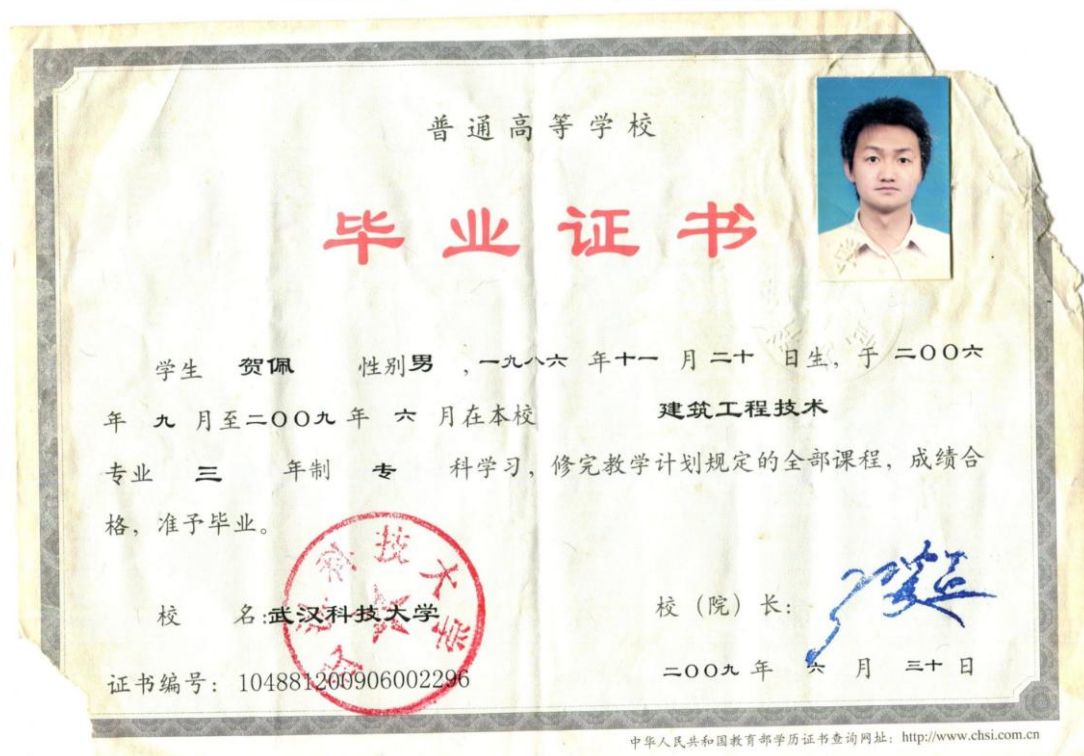 普通高等学校
毕业证书
学生 贺佩 性别男 ,一九八六 年十一 月 二十 日生, 于 二〇〇六
年 九 月至二〇〇九 年 六 月在本校 建筑工程技术
专业 三 年制 专 科学习, 修完教学计划规定的全部课程, 成绩合
格, 准予毕业。
武汉科技大学
校 名:武汉科技大学 校 (院) 长:
证书编号: 104881200906002296 二〇〇九 年 六 月 三十 日
中华人民共和国教育部学历证书查询网址: http://www.chsi.com.cn